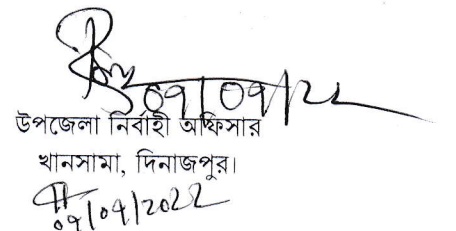 ০৭/০৭/২২
উপজেলা নির্বাহী অফিসার
খানসামা, দিনাজপুর।
০৭/০৭/2022